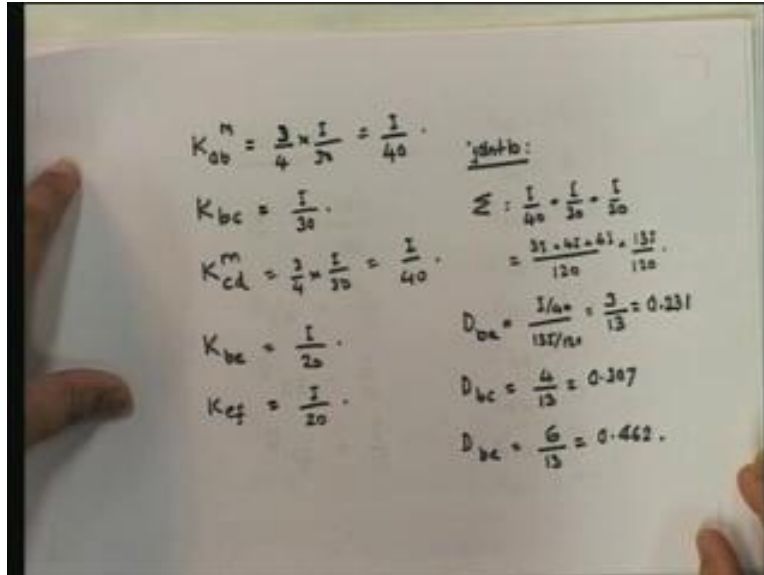 K_ab^m = 3/4 × I/30 = I/40 .
K_bc = I/30 .
K_cd^m = 3/4 × I/30 = I/40 .
K_be = I/20 .
K_ef = I/20 .
joint b:
Σ : I/40 + I/30 + I/20
= 3I + 4I + 6I / 120 = 13I/120 .
D_ba = I/40 / 13I/120 = 3/13 = 0.231
D_bc = 4/13 = 0.307
D_be = 6/13 = 0.462 .